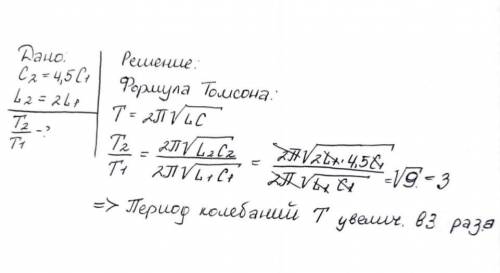 Дано:
C₂ = 4,5C₁
L₂ = 2L₁
T₂/T₁ - ?
Решение:
Формула Томсона:
T = 2π√LC
T₂/T₁ = 2π√L₂C₂ / 2π√L₁C₁ = 2π√2L₁·4,5C₁ / 2π√L₁C₁ = √9 = 3
=> Период колебаний T увелич. в 3 раза